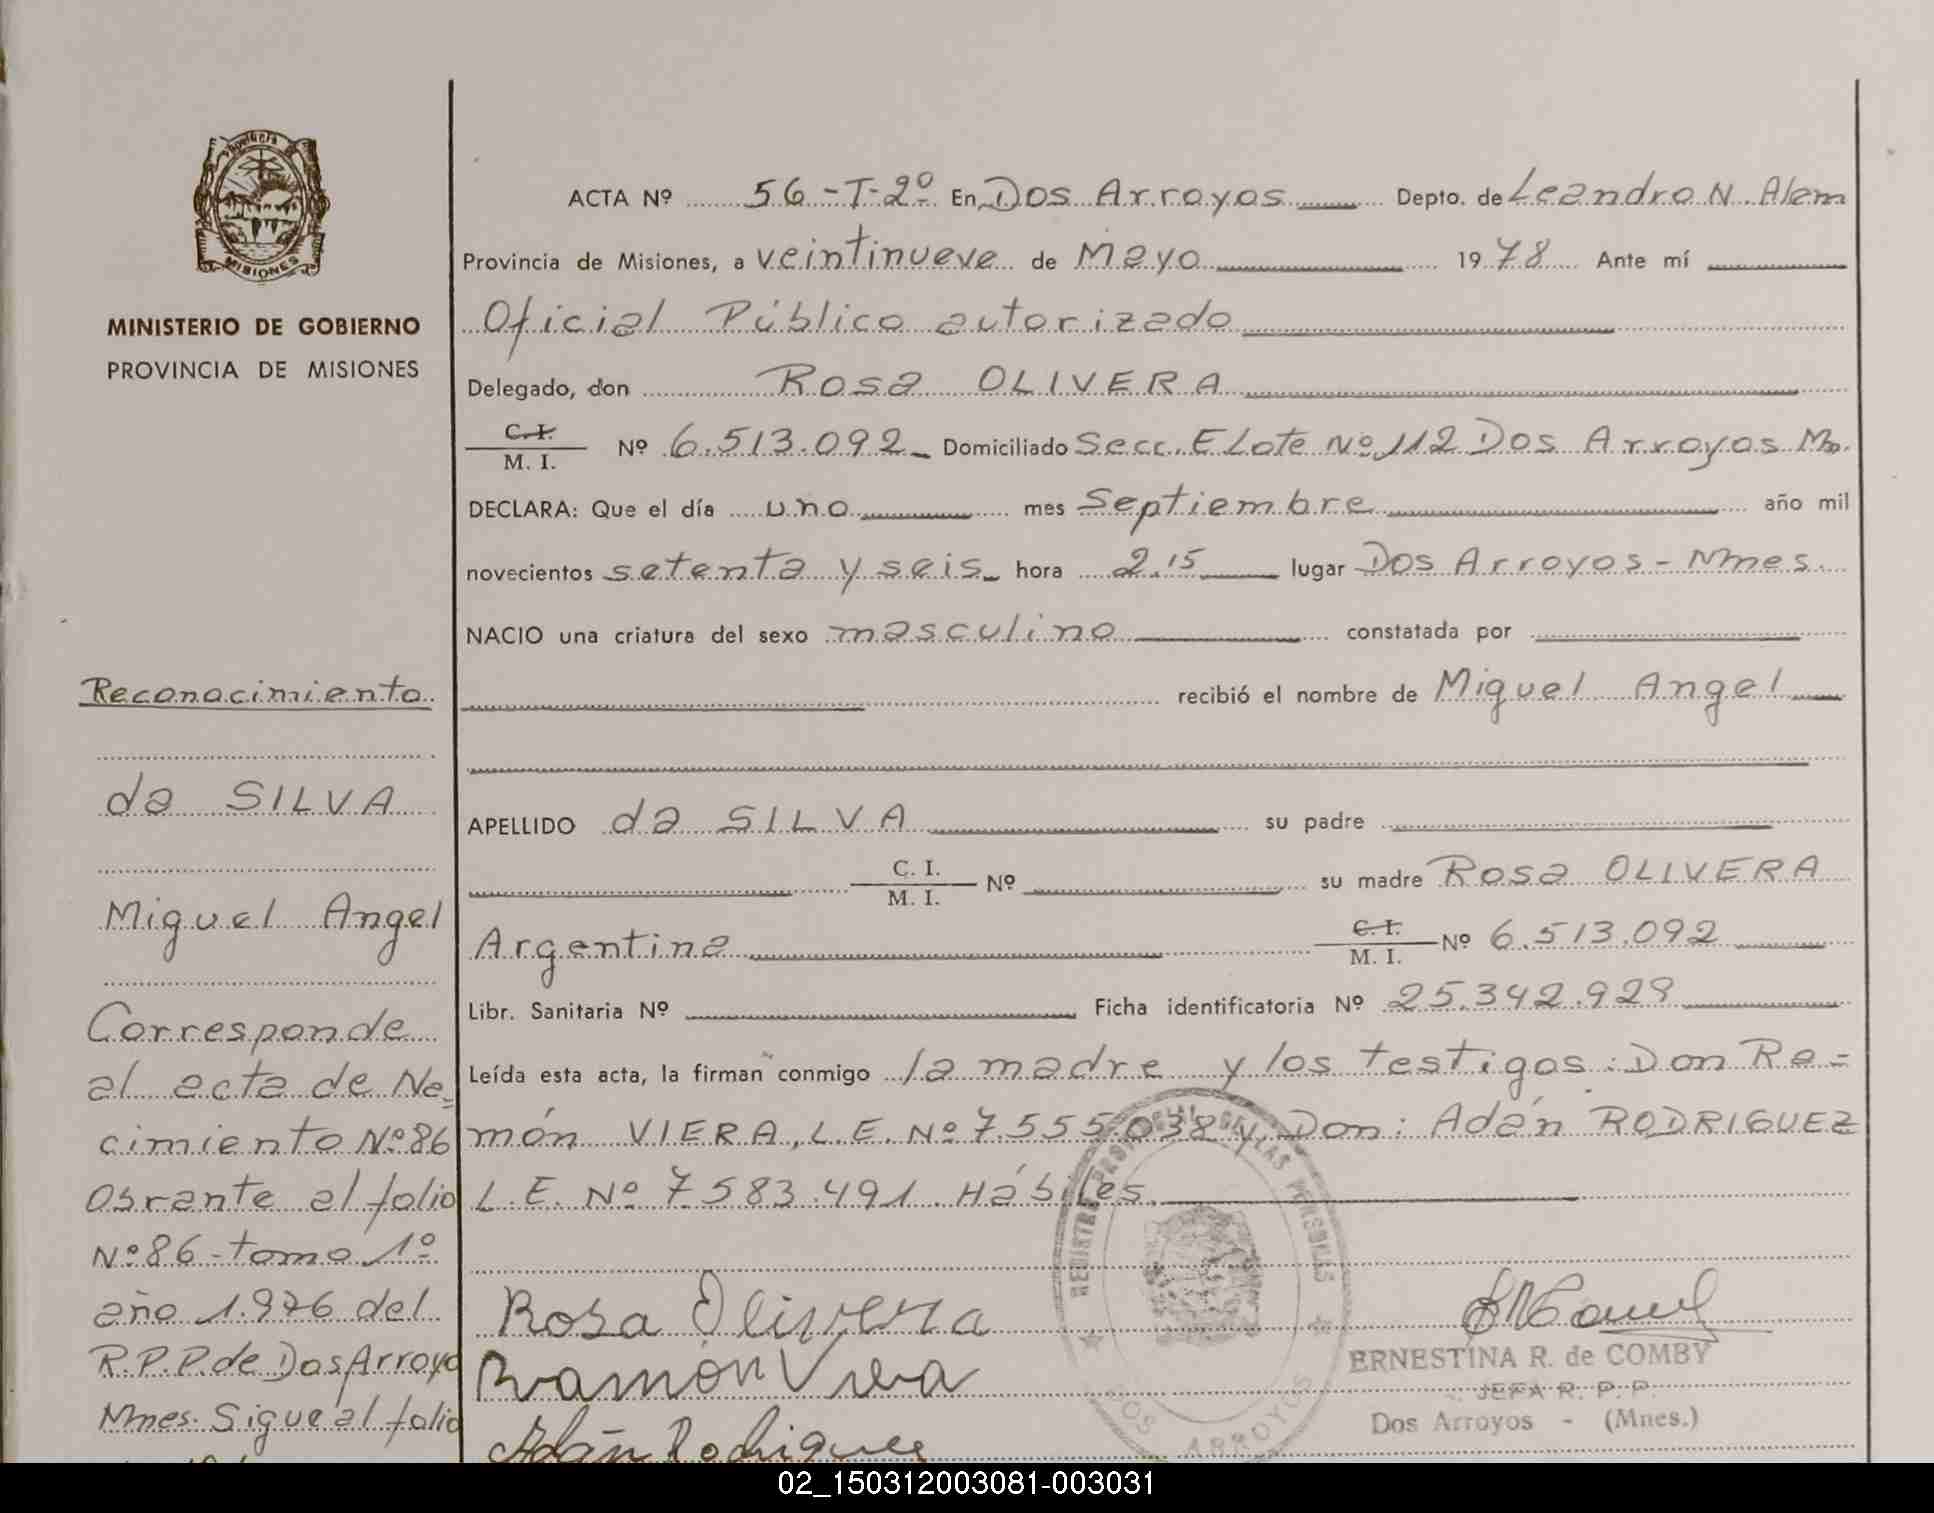 Provincia
MISIONES
MINISTERIO DE GOBIERNO
PROVINCIA DE MISIONES
Reconocimiento
da SILVA
Miguel Angel
Corresponde
al acta de Na=
cimiento Nº 86
Obrante al folio
Nº 86 - tomo 1º
año 1.976 del
R.P.P. de Dos Arroyo
Mnes. Sigue al folio
ACTA Nº 56 - T - 2º En Dos Arroyos Depto. de Leandro N. Alem
Provincia de Misiones, a veintinueve de Mayo 1978 Ante mí
Oficial Público autorizado
Delegado, don Rosa OLIVERA
C. I.
M. I. Nº 6.513.092 Domiciliado Secc. E Lote Nº 112 Dos Arroyos M.
DECLARA: Que el día uno mes Septiembre año mil
novecientos setenta y seis hora 2.15 lugar Dos Arroyos - Mnes.
NACIO una criatura del sexo masculino constatada por
recibió el nombre de Miguel Angel
APELLIDO da SILVA su padre
C. I.
M. I. Nº su madre Rosa OLIVERA
Argentina C. I.
M. I. Nº 6.513.092
Libr. Sanitaria Nº Ficha identificatoria Nº 25.342.929
Leída esta acta, la firman conmigo la madre y los testigos: Don Ra=
món VIERA, L.E. Nº 7.555.038 y Don: Adán RODRIGUEZ
L.E. Nº 7583.491. Hábiles.
REGISTRO PROVINCIAL DE LAS PERSONAS
DOS ARROYOS
Rosa Olivera
Ramón Viera
Adán Rodriguez
ERNESTINA R. de COMBY
JEFA R. P. P.
Dos Arroyos - (Mnes.)
02_150312003081-003031